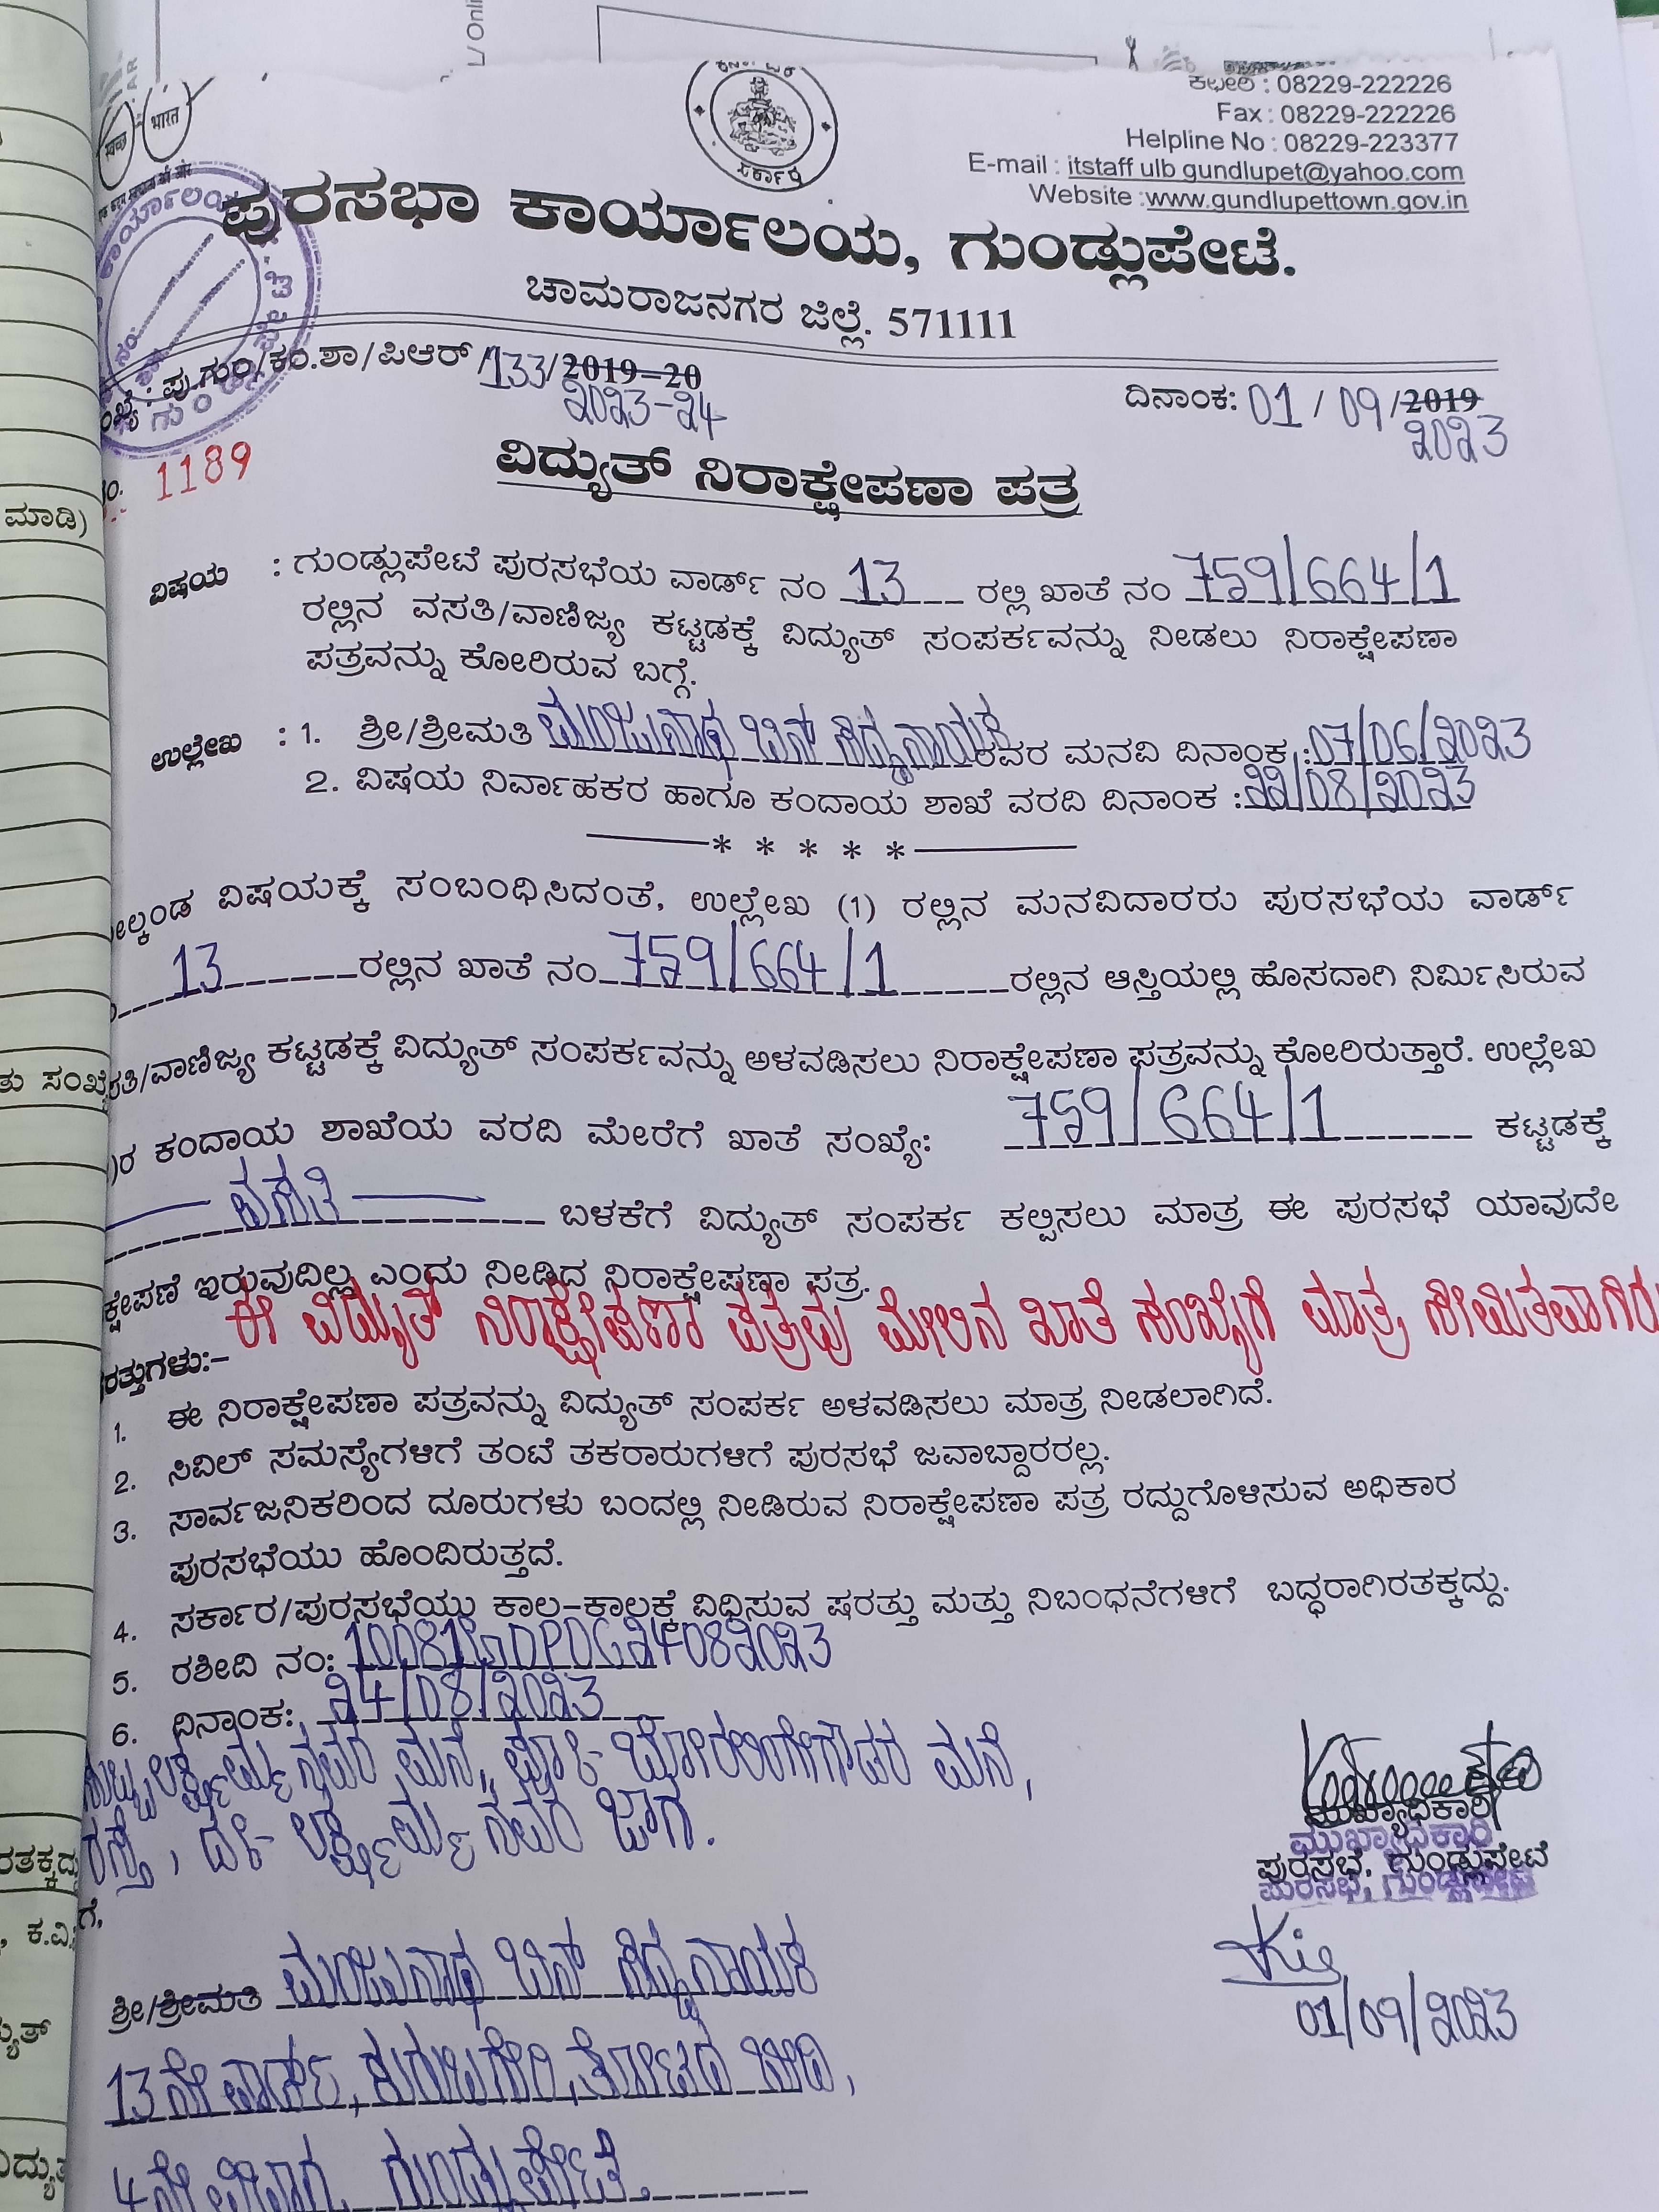 L/ Onli
ಕಛೇರಿ : 08229-222226
Fax : 08229-222226
Helpline No : 08229-223377
E-mail : itstaff ulb gundlupet@yahoo.com
Website :www.gundlupettown.gov.in
स्वच्छ भारत
ಸರ್ಕಾರ
ಪುರಸಭಾ ಕಾರ್ಯಾಲಯ, ಗುಂಡ್ಲುಪೇಟೆ.
ಚಾಮರಾಜನಗರ ಜಿಲ್ಲೆ. 571111
ಪು.ಗುಂ/ಕಂ.ಶಾ/ಪಿಆರ್ /133/2019-20
2023-24
ದಿನಾಂಕ: 01 / 09 /2019
2023
No. 1189
ವಿದ್ಯುತ್ ನಿರಾಕ್ಷೇಪಣಾ ಪತ್ರ
ಮಾಡಿ)
ವಿಷಯ : ಗುಂಡ್ಲುಪೇಟೆ ಪುರಸಭೆಯ ವಾರ್ಡ್ ನಂ 13 ರಲ್ಲಿ ಖಾತೆ ನಂ 759/664/1
ರಲ್ಲಿನ ವಸತಿ/ವಾಣಿಜ್ಯ ಕಟ್ಟಡಕ್ಕೆ ವಿದ್ಯುತ್ ಸಂಪರ್ಕವನ್ನು ನೀಡಲು ನಿರಾಕ್ಷೇಪಣಾ
ಪತ್ರವನ್ನು ಕೋರಿರುವ ಬಗ್ಗೆ.
ಉಲ್ಲೇಖ : 1. ಶ್ರೀ/ಶ್ರೀಮತಿ ಮಂಜುನಾಥ ಬಿನ್ ಸಿದ್ದನಾಯಕ ರವರ ಮನವಿ ದಿನಾಂಕ :07/06/2023
2. ವಿಷಯ ನಿರ್ವಾಹಕರ ಹಾಗೂ ಕಂದಾಯ ಶಾಖೆ ವರದಿ ದಿನಾಂಕ :22/08/2023
* * * * *
ಮೇಲ್ಕಂಡ ವಿಷಯಕ್ಕೆ ಸಂಬಂಧಿಸಿದಂತೆ, ಉಲ್ಲೇಖ (1) ರಲ್ಲಿನ ಮನವಿದಾರರು ಪುರಸಭೆಯ ವಾರ್ಡ್
13 ರಲ್ಲಿನ ಖಾತೆ ನಂ 759/664/1 ರಲ್ಲಿನ ಆಸ್ತಿಯಲ್ಲಿ ಹೊಸದಾಗಿ ನಿರ್ಮಿಸಿರುವ
ತಿ/ವಾಣಿಜ್ಯ ಕಟ್ಟಡಕ್ಕೆ ವಿದ್ಯುತ್ ಸಂಪರ್ಕವನ್ನು ಅಳವಡಿಸಲು ನಿರಾಕ್ಷೇಪಣಾ ಪತ್ರವನ್ನು ಕೋರಿರುತ್ತಾರೆ. ಉಲ್ಲೇಖ
)ರ ಕಂದಾಯ ಶಾಖೆಯ ವರದಿ ಮೇರೆಗೆ ಖಾತೆ ಸಂಖ್ಯೆ: 759/664/1 ಕಟ್ಟಡಕ್ಕೆ
ವಸತಿ ಬಳಕೆಗೆ ವಿದ್ಯುತ್ ಸಂಪರ್ಕ ಕಲ್ಪಿಸಲು ಮಾತ್ರ ಈ ಪುರಸಭೆ ಯಾವುದೇ
ಕ್ಷೇಪಣೆ ಇರುವುದಿಲ್ಲ ಎಂದು ನೀಡಿದ ನಿರಾಕ್ಷೇಪಣಾ ಪತ್ರ.
ಈ ವಿದ್ಯುತ್ ನಿರಾಕ್ಷೇಪಣಾ ಪತ್ರವು ಮೇಲಿನ ಖಾತೆ ಸಂಖ್ಯೆಗೆ ಮಾತ್ರ ಸೀಮಿತವಾಗಿರು
ರತ್ತುಗಳು:-
1. ಈ ನಿರಾಕ್ಷೇಪಣಾ ಪತ್ರವನ್ನು ವಿದ್ಯುತ್ ಸಂಪರ್ಕ ಅಳವಡಿಸಲು ಮಾತ್ರ ನೀಡಲಾಗಿದೆ.
2. ಸಿವಿಲ್ ಸಮಸ್ಯೆಗಳಿಗೆ ತಂಟೆ ತಕರಾರುಗಳಿಗೆ ಪುರಸಭೆ ಜವಾಬ್ದಾರರಲ್ಲ.
3. ಸಾರ್ವಜನಿಕರಿಂದ ದೂರುಗಳು ಬಂದಲ್ಲಿ ನೀಡಿರುವ ನಿರಾಕ್ಷೇಪಣಾ ಪತ್ರ ರದ್ದುಗೊಳಿಸುವ ಅಧಿಕಾರ
ಪುರಸಭೆಯು ಹೊಂದಿರುತ್ತದೆ.
4. ಸರ್ಕಾರ/ಪುರಸಭೆಯು ಕಾಲ-ಕಾಲಕ್ಕೆ ವಿಧಿಸುವ ಷರತ್ತು ಮತ್ತು ನಿಬಂಧನೆಗಳಿಗೆ ಬದ್ಧರಾಗಿರತಕ್ಕದ್ದು.
5. ರಶೀದಿ ನಂ:
6. ದಿನಾಂಕ: 24/08/2023
ಮನೆ,
ಲಕ್ಷ್ಮಮ್ಮನವರ ಜಾಗ.
ಮುಖ್ಯಾಧಿಕಾರಿ
ಮುಖ್ಯಾಧಿಕಾರಿ
ಪುರಸಭೆ, ಗುಂಡ್ಲುಪೇಟೆ
ಪುರಸಭೆ, ಗುಂಡ್ಲುಪೇಟೆ
01/09/2023
ಗೆ,
ಶ್ರೀ/ಶ್ರೀಮತಿ ಮಂಜುನಾಥ ಬಿನ್ ಸಿದ್ದನಾಯಕ
13ನೇ ವಾರ್ಡ್, ಕುರುಬಗೇರಿ, ತೋಟದ ಬೀದಿ,
4ನೇ ವಿಭಾಗ, ಗುಂಡ್ಲುಪೇಟೆ.